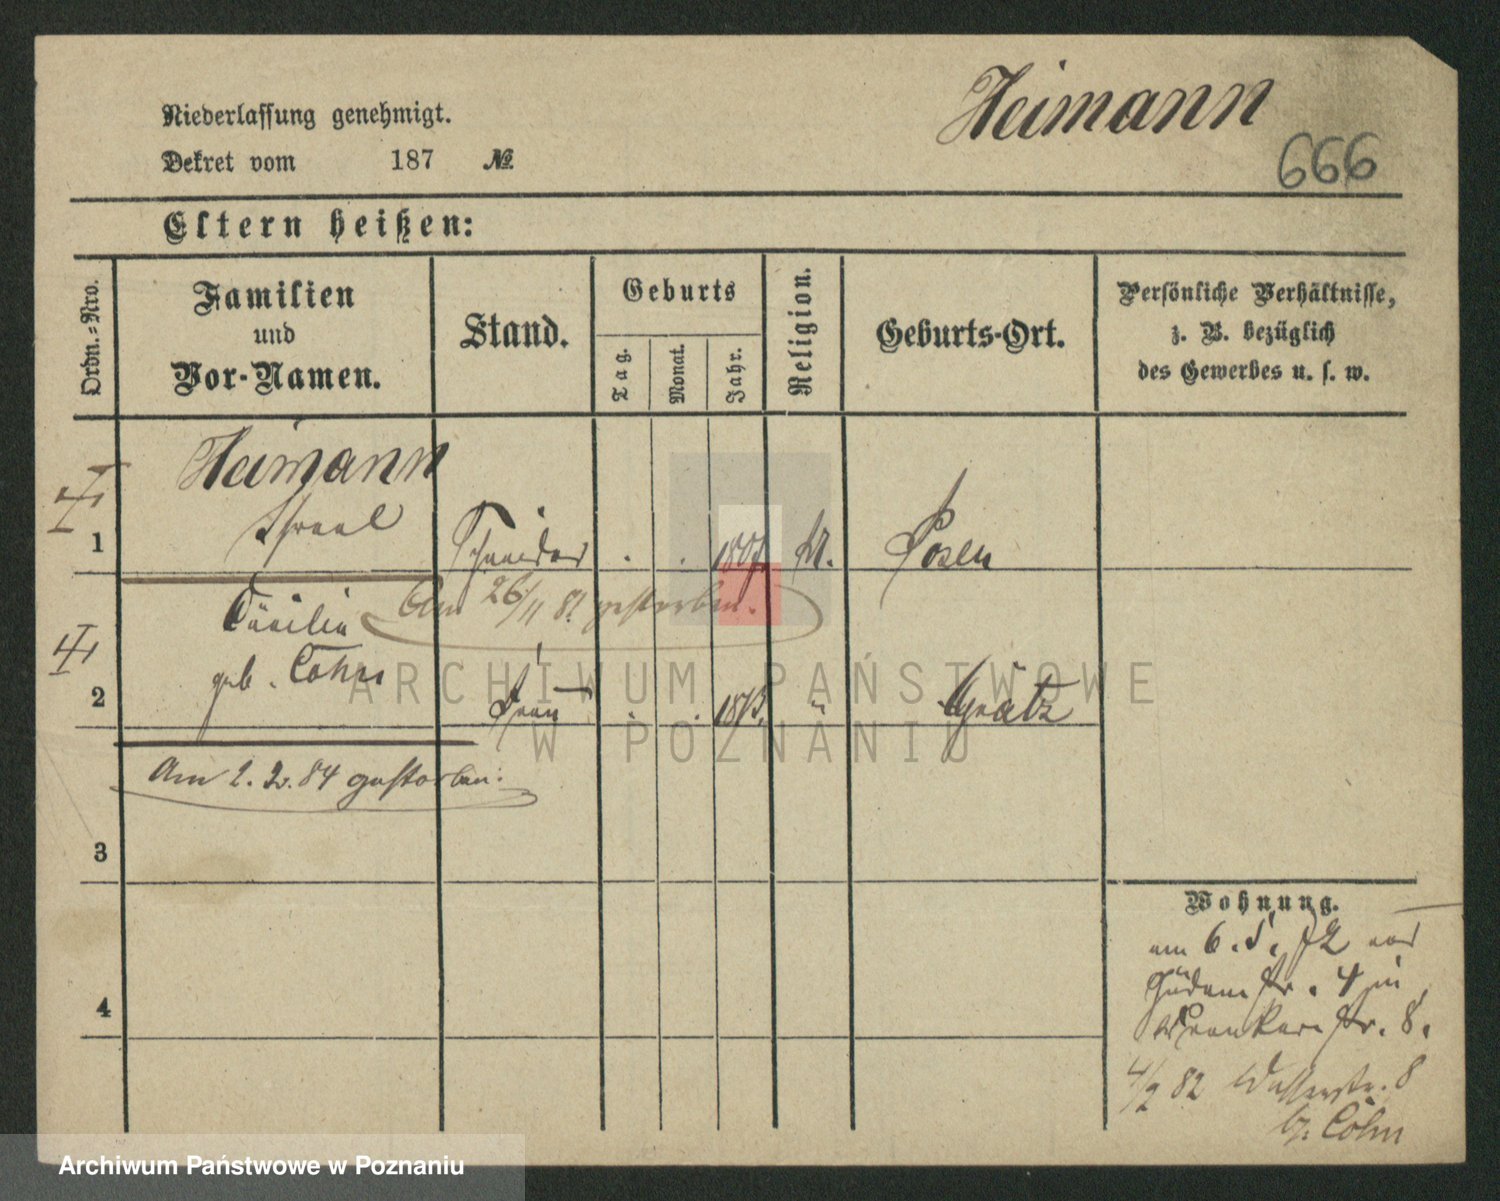 Heimann
Niederlassung genehmigt.
Dekret vom 187 №
666
Eltern heißen:
Ordn.=Nro.
Familien
und
Vor-Namen.
Stand.
Geburts
Tag.
Monat.
Jahr.
Religion.
Geburts-Ort.
Persönliche Verhältnisse,
z. B. bezüglich
des Gewerbes u. s. w.
Heimann
Israel
1
Schneider
Posen
Am 26/11 81 gestorben.
Cäcilie
geb. Cohn
2
Frau
Grätz
Am 2. 2. 84 gestorben.
3
4
Wohnung.
am 6. 5. 72 von
Judenstr. 4 in
Kramkerstr. 8.
4/2 82 Wasserstr. 8
Cohn
ARCHIWUM PAŃSTWOWE
W POZNANIU
Archiwum Państwowe w Poznaniu